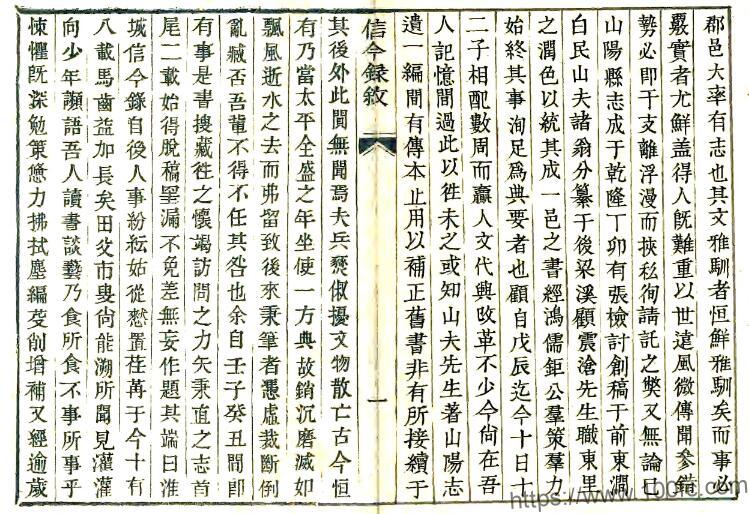 郡邑大率有志也其文雅馴者恒鮮雅馴矣而事必
覈實者尤鮮盖得人旣難重以世遠風微傳聞參錯
勢必卽于支離浮漫而挾私徇請託之獘又無論已
山陽縣志成于乾隆丁卯有張檢討創稿于前東澗
白民山夫諸翁分纂于後梁溪顧震滄先生職東里
之潤色以統其成一邑之書經鴻儒鉅公羣策羣力
始終其事洵足爲典要者也顧自戊辰迄今十日十
二子相配數周而贏人文代興攺革不少今尙在吾
人記憶間過此以徃未之或知山夫先生著山陽志
遺一編間有傳本止用以補正舊書非有所接續于
信今錄敘
一
其後外此聞無聞焉夫兵燹俶擾文物散亡古今恒
有乃當太平全盛之年坐使一方典故銷沉磨滅如
飄風逝水之去而弗留致後來秉筆者憑虛裁斷倒
亂臧否吾輩不得不任其咎也余自壬子癸丑間卽
有事是書搜藏徃之懷竭訪問之力矢秉直之志首
尾二載始得脫稿罣漏不免差無妄作題其端曰淮
城信今錄自後人事紛紜姑從憖置荏苒于今十有
八載馬齒益加長矣田父市叟尙能溯所聞見灌灌
向少年灝語吾人讀書談藝乃食所食不事所事乎
悚懼旣深勉策憊力拂拭塵編芟削增補又經逾歲
https://www.100fc.com